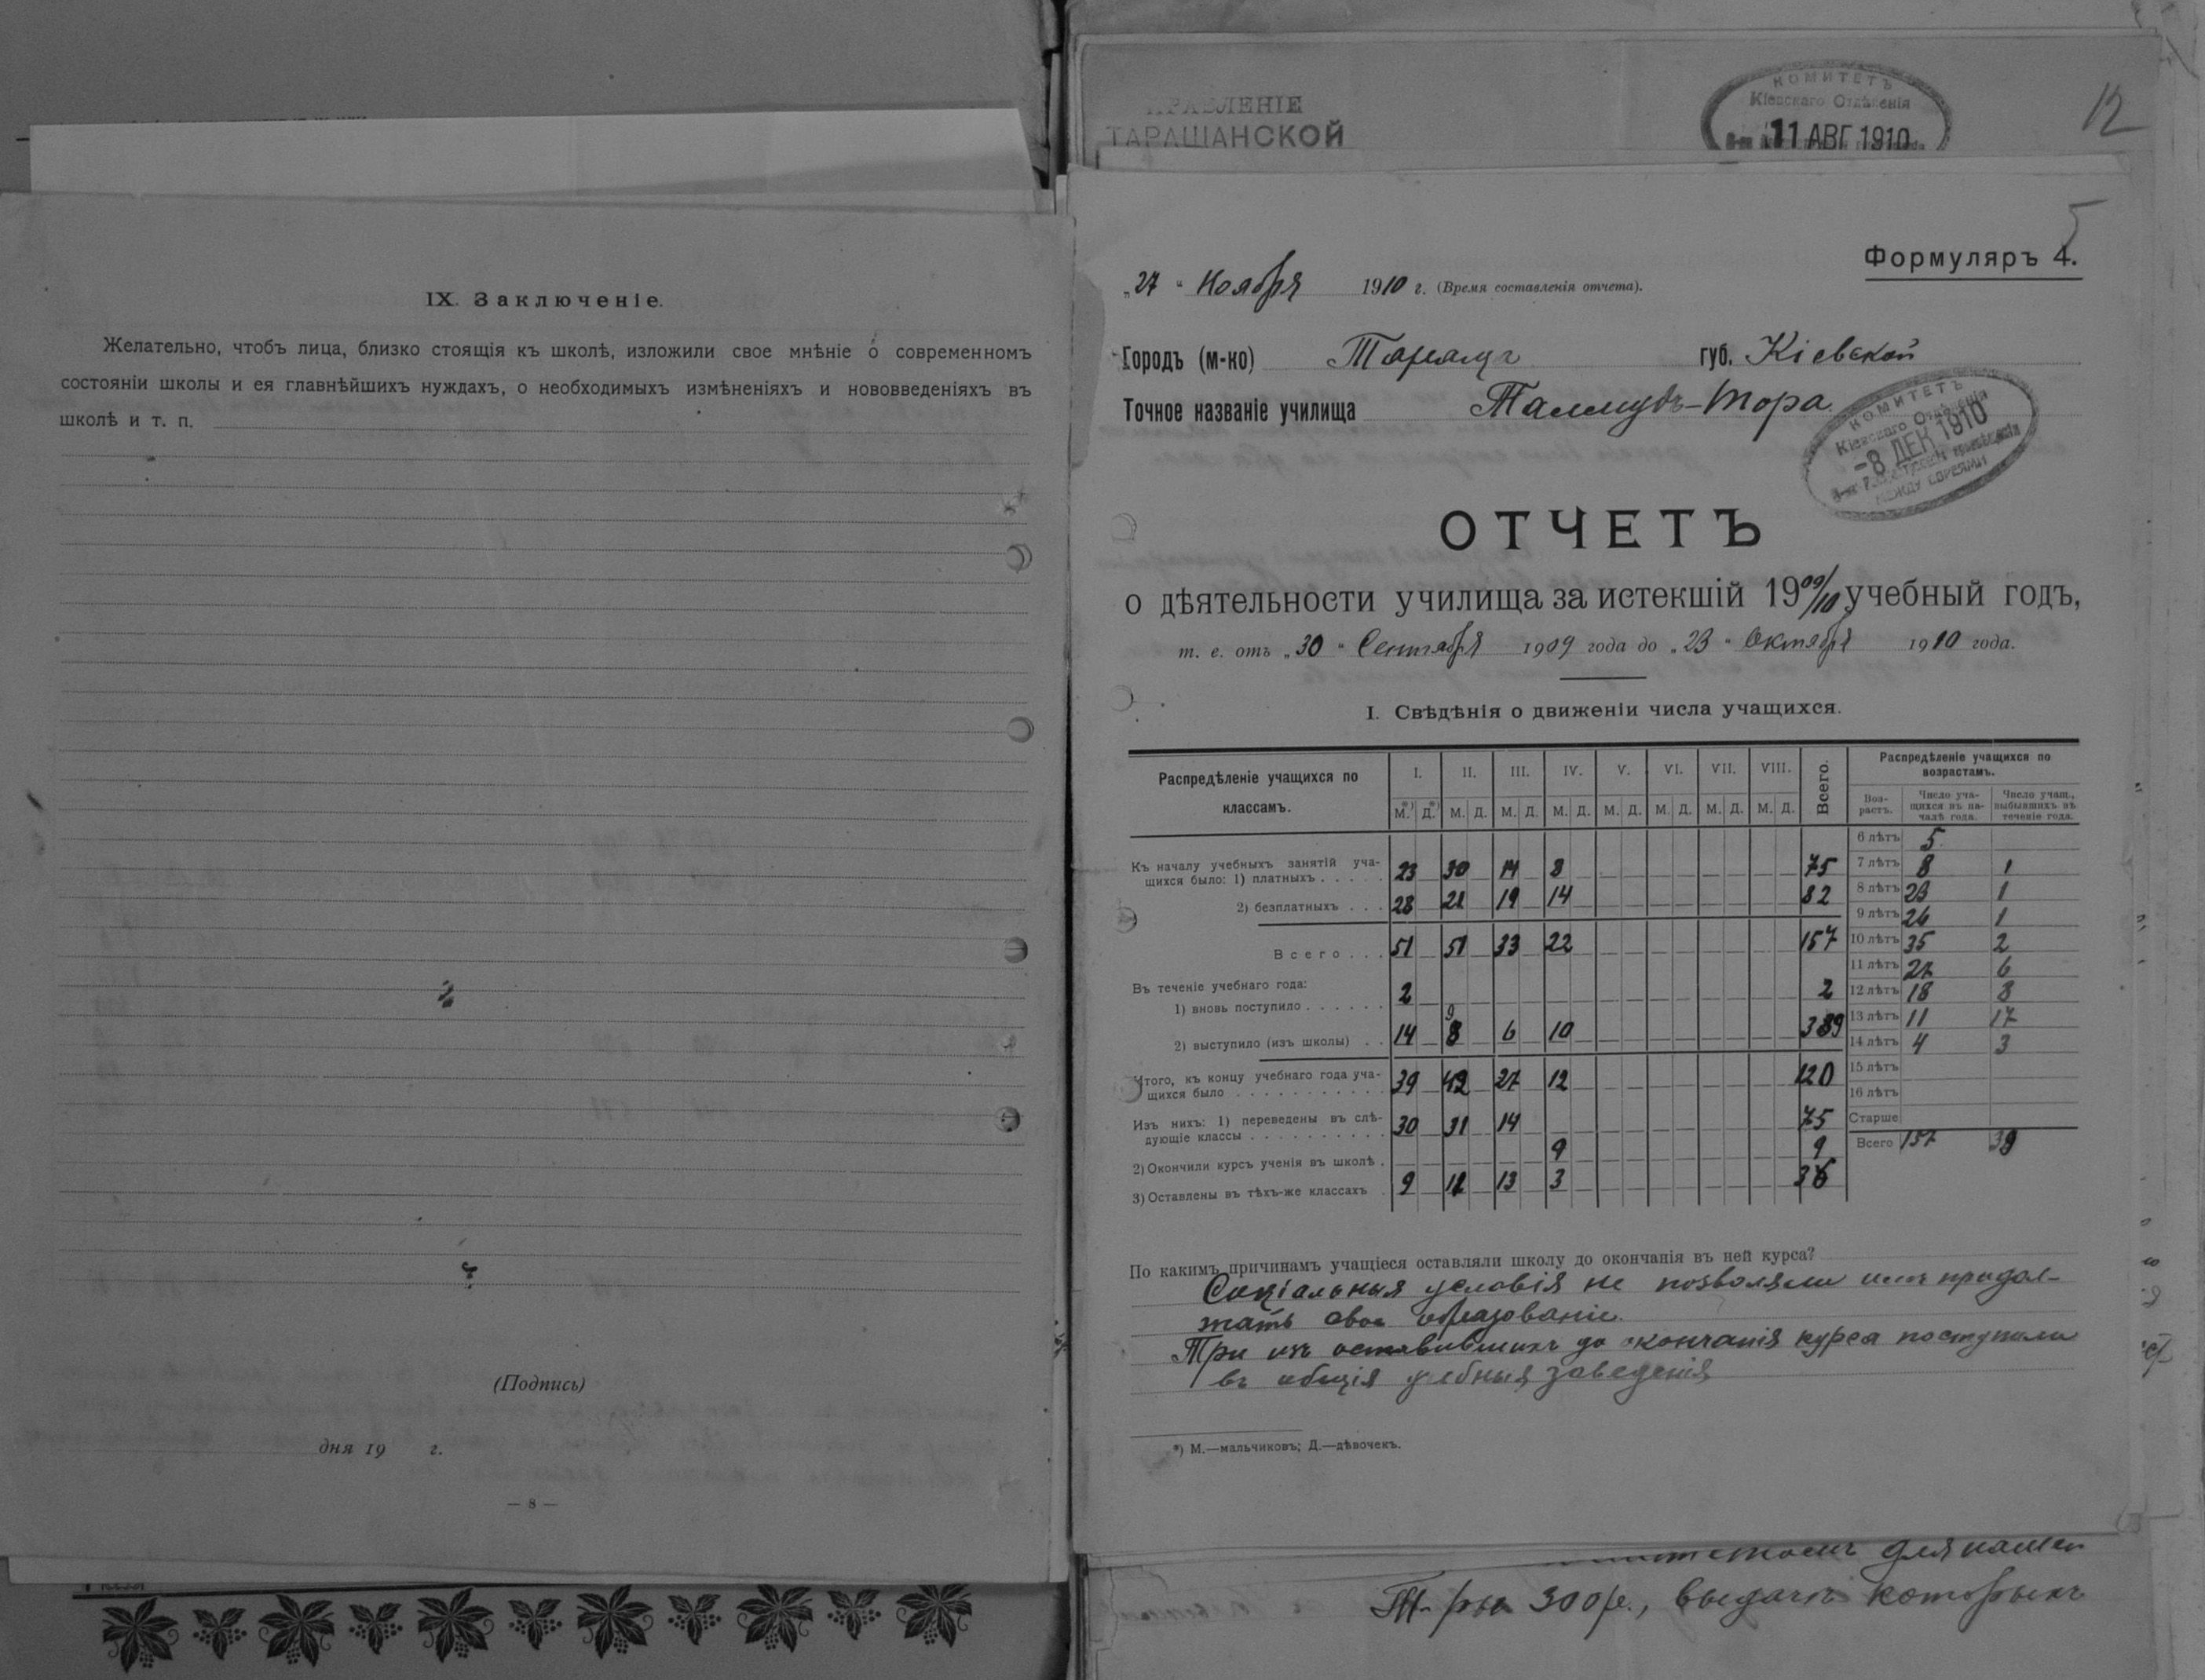 IX. Заключеніе.
Желательно, чтобъ лица, близко стоящія къ школѣ, изложили свое мнѣніе о современномъ
состояніи школы и ея главнѣйшихъ нуждахъ, о необходимыхъ измѣненіяхъ и нововведеніяхъ въ
школѣ и т. п.
(Подпись)
дня 19 г.
— 8 —
ПРАВЛЕНІЕ
ТАРАЩАНСКОЙ
КОМИТЕТЪ
Кіевскаго Отдѣленія
11 АВГ 1910
12
5
Формуляръ 4.
„27“ Ноября 1910 г. (Время составленія отчета).
Городъ (м-ко) Тараща губ. Кіевской
Точное названіе училища Талмудъ-Тора
КОМИТЕТЪ
Кіевскаго Отдѣленія
-8 ДЕК 1910
МЕЖДУ ЕВРЕЯМИ
ОТЧЕТЪ
о дѣятельности училища за истекшій 1909/10 учебный годъ,
т. е. отъ „30“ Сентября 1909 года до „23“ Октября 1910 года.
I. Свѣдѣнія о движеніи числа учащихся.
Распредѣленіе учащихся по классамъ. I. II. III. IV. V. VI. VII. VIII. Всего.
М.*) Д.*) М. Д. М. Д. М. Д. М. Д. М. Д. М. Д. М. Д.
Къ началу учебныхъ занятій уча-
щихся было: 1) платныхъ 23 30 14 8 75
2) безплатныхъ 28 21 19 14 82
Всего 51 51 33 22 157
Въ теченіе учебнаго года:
1) вновь поступило 2 2
2) выступило (изъ школы) 14 9 6 10 39
Итого, къ концу учебнаго года уча-
щихся было 39 42 27 12 120
Изъ нихъ: 1) переведены въ слѣ-
дующіе классы 30 31 14 75
2) Окончили курсъ ученія въ школѣ 9 9
3) Оставлены въ тѣхъ-же классахъ 9 11 13 3 36
Распредѣленіе учащихся по
возрастамъ.
Воз-
растъ. Число уча-
щихся въ на-
чалѣ года. Число учащ.,
выбывшихъ въ
теченіе года.
6 лѣтъ 5
7 лѣтъ 8 1
8 лѣтъ 23 1
9 лѣтъ 26 1
10 лѣтъ 35 2
11 лѣтъ 27 6
12 лѣтъ 18 8
13 лѣтъ 11 17
14 лѣтъ 4 3
15 лѣтъ
16 лѣтъ
Старше
Всего 157 39
По какимъ причинамъ учащіеся оставляли школу до окончанія въ ней курса?
Соціальныя условія не позволяли имъ продол-
жать свое образованіе.
Три изъ оставившихъ до окончанія курса поступили
въ общія учебныя заведенія
*) М.—мальчиковъ; Д.—дѣвочекъ.
для нашей
Т-ры 300 р., выдачи которыхъ